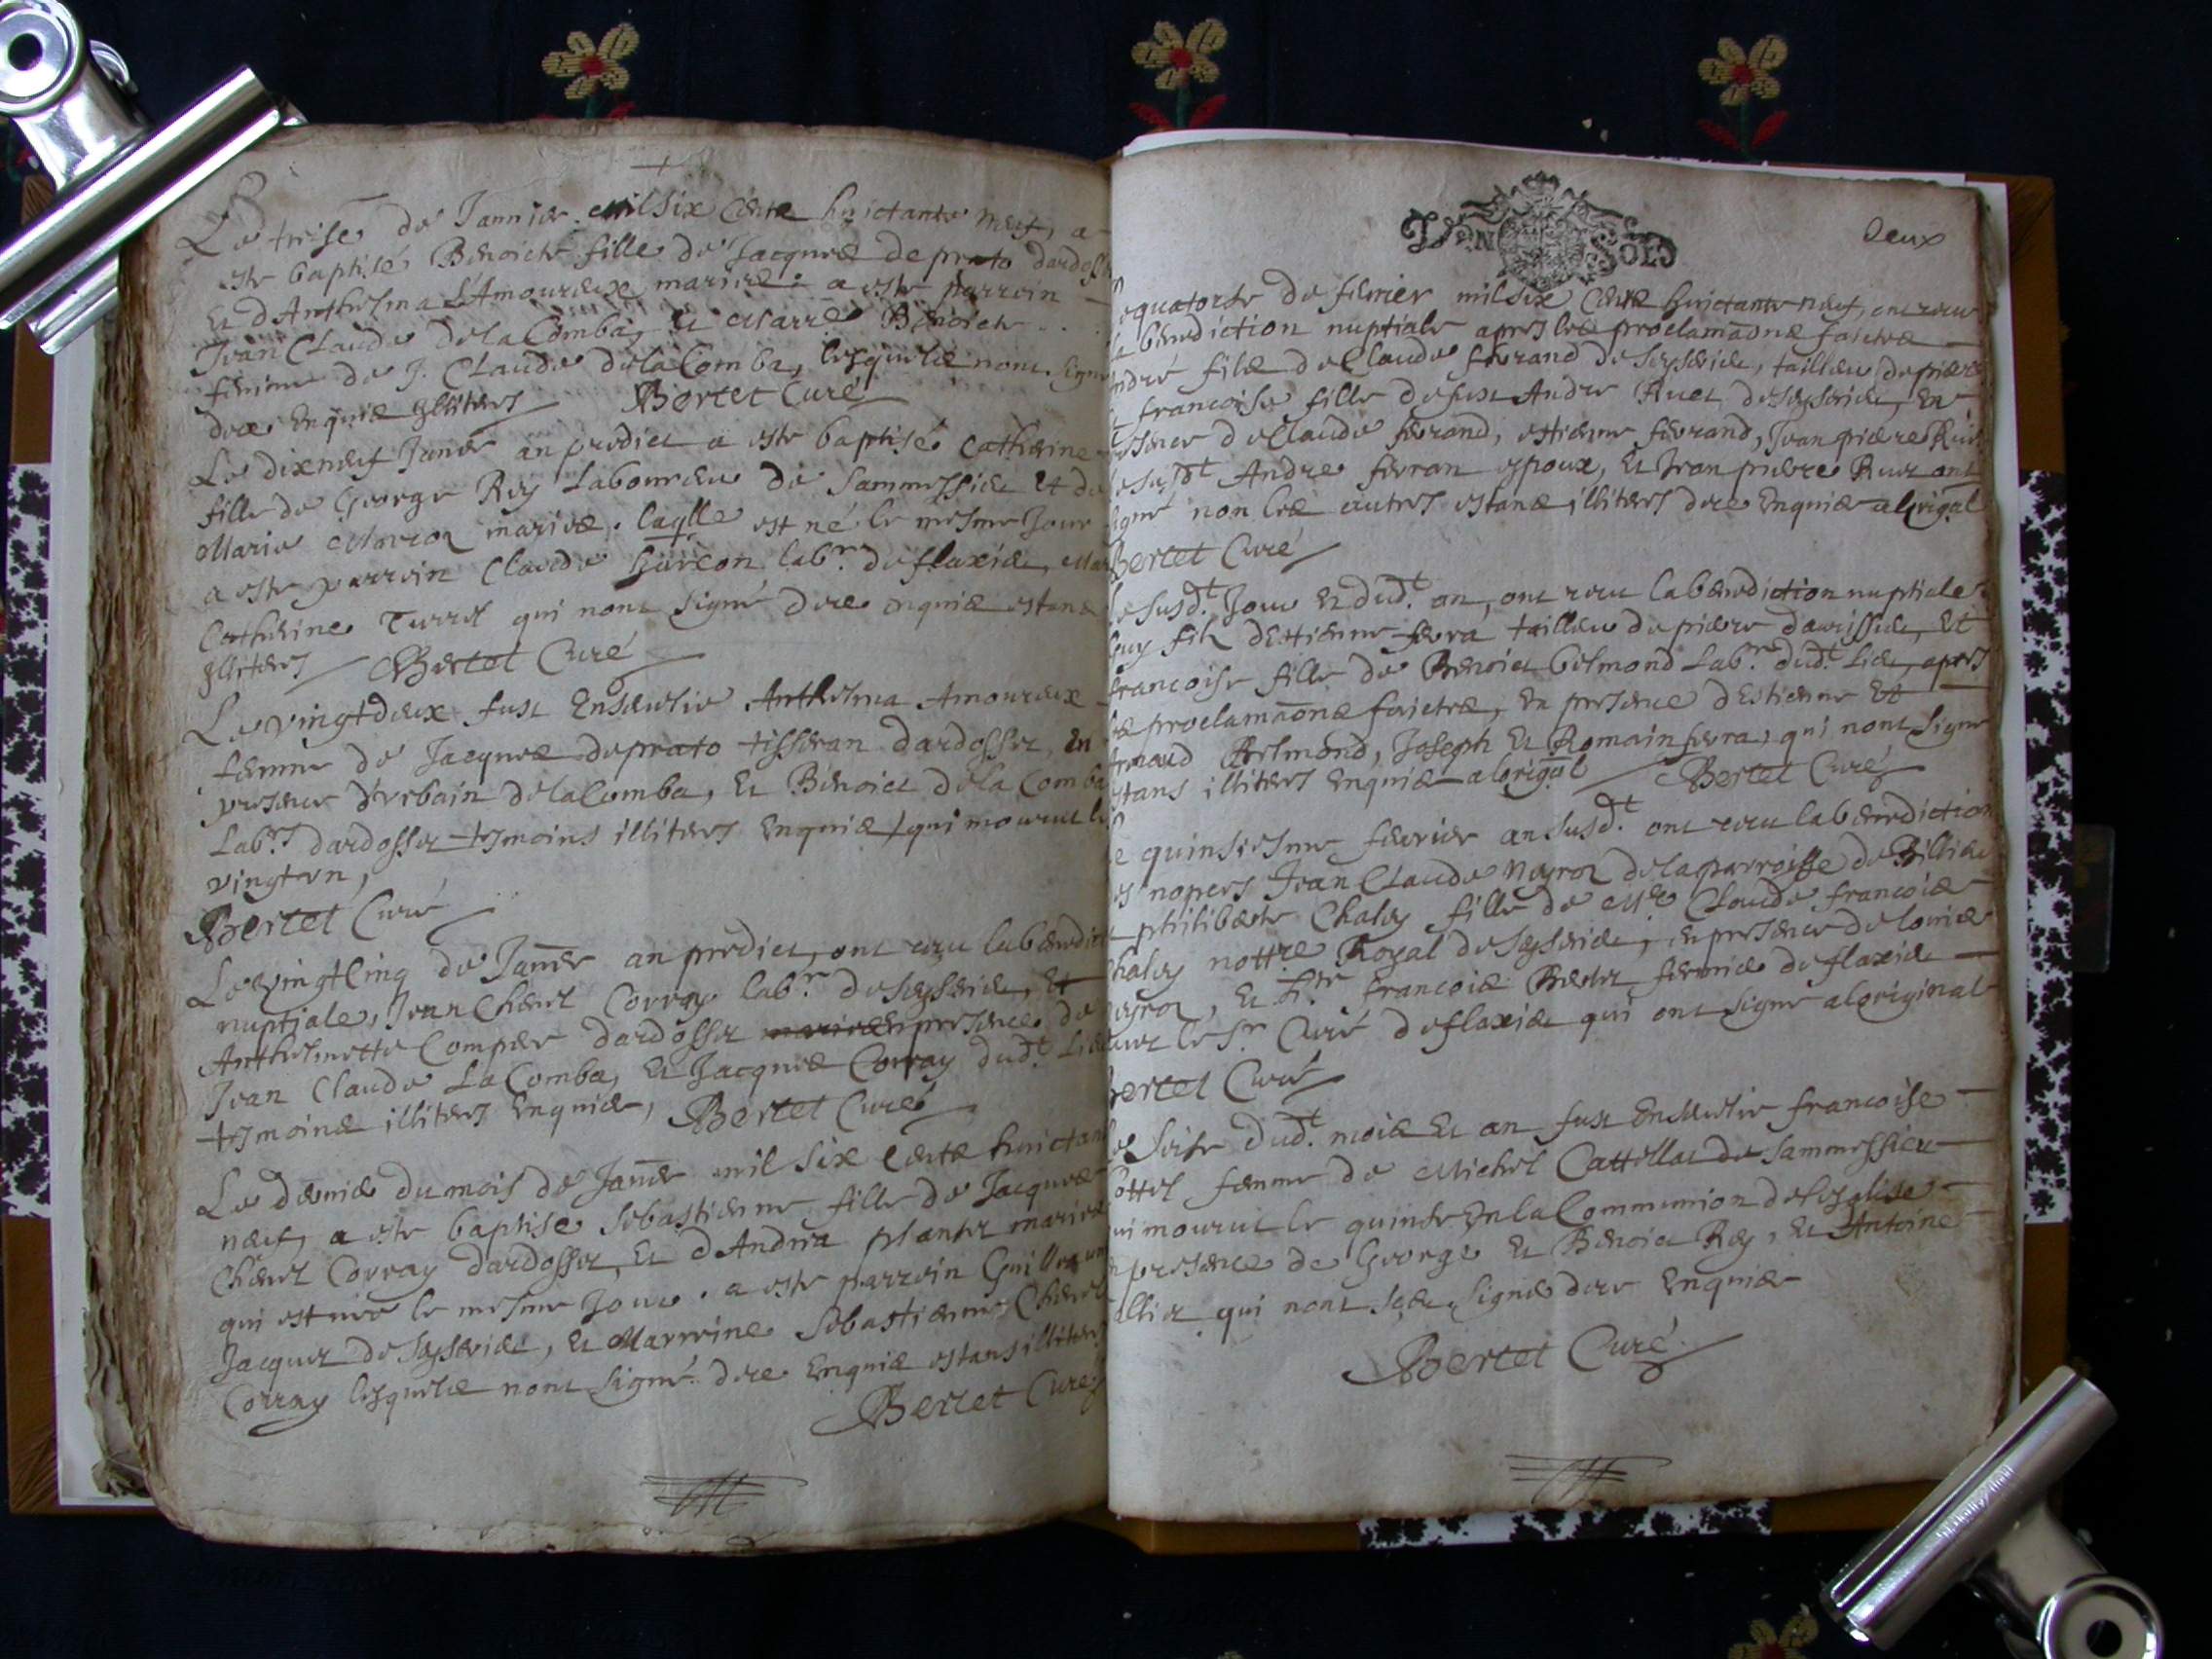 Le treise de Jannier mil six cents huictante neuf, a
este baptisé Benoicte fille de Jacques deprato dardoss
Et d'Anthelma L'Amoureux mariés. a este parrein
Jean Claude DelaComba, Et Marre Benoicte
femme de J. Claude DelaComba, lesquels nont signe
dece Enquis Illiters Bertet Curé
Le dixneuf Janer an predict a este baptisé Catherine
fille de George Rey Laboureur de Sammessieu Et de
Marie mariés. laqlle est né le mesme Jour
a este parrein Claude Garcon labr. deflaxieu, Mar
Catherine Turrel qui nont signé dece enquis estans
Illiters Bertet Curé
Le vingtdeux fust Ensevelie Anthelma Amoureux
femme de Jacques deprato tisseran dardosset, En
presence d'Vrbain delaComba, Et Benoict dela Comba
Labrs dardosset tesmoins illiters Enquis, qui mourut le
vingt
Bertet Curé
Le vingt cinq de Janer an predict, ont receu la benedict
nuptiale, Jean Corray labr. de seysserieu, Et
Anthelmette Comper dardosset en presence de
Jean Claude LaComba, Et Jacques Corray dudt. Lieu
tesmoins illiters Enquis, Bertet Curé
Le dernie du mois de Janer mil six cents huictant
neuf, a este baptisé Sebastienne fille de Jacques
Corray dardosset, Et d'Andrea plantet mariés
qui est née le mesme Jour. a este parrein Guilleaume
Jacquet de Seysserieu, Et Marreine Sebastienne
Corray lesquels nont signé dece Enquis estans illiters
Bertet Curé
VN SOLD
Deux
equatorse de feuvrier mil six cents huictante neuf, ont receu
la benediction nuptiale apres les proclamaons faictes
André fils de Claude feurand de Seysserieu, tailleur depierre
Et francoise fille defust Andre Ruet deseysserieu, En
presence de Claude feurand, estienne feurand, Jean pierre Ruet
le susdt Andre feuran espoux, Et Jean pierre Ruet ont
signé non les autres estans illiters dece Enquis a lorigal
Bertet Curé
Le susdt. Jour Et dudt. an, ont receu la benediction nuptiale
Guy filz d'Estienne feura tailleur de pierre daurissieu, Et
francoise fille de Benoict belmond Labr. dudt Lieu, apres
les proclamaons faictes, En presence d'Estienne Et
Armaud Belmond, Joseph Et Romain feura, qui nont signe
estans illiters Enquis a lorigal Bertet Curé
Le quinsiesme feuvrier an susdt. ont receu la benediction
es nopces Jean Claude Neyroz de la parroisse de Billieu
Et philiberte Chaley fille de Mre Claude francois
Chaley nottre Royal de Seysserieu, en presence de louis
Neyroz, Et francois fermie deflaxieu
Curé deflaxieu qui ont signe a loriginal
Bertet Curé
Le Seise dudt. mois Et an fust Ensevelie francoise
femme de Michel Cattellat de Sammessieu
qui mourut le quinse En la Communion de lesglise
En presence de George Et Benoict Rey, Et Antoine
allier qui nont sceu signé dece Enquis
Bertet Curé